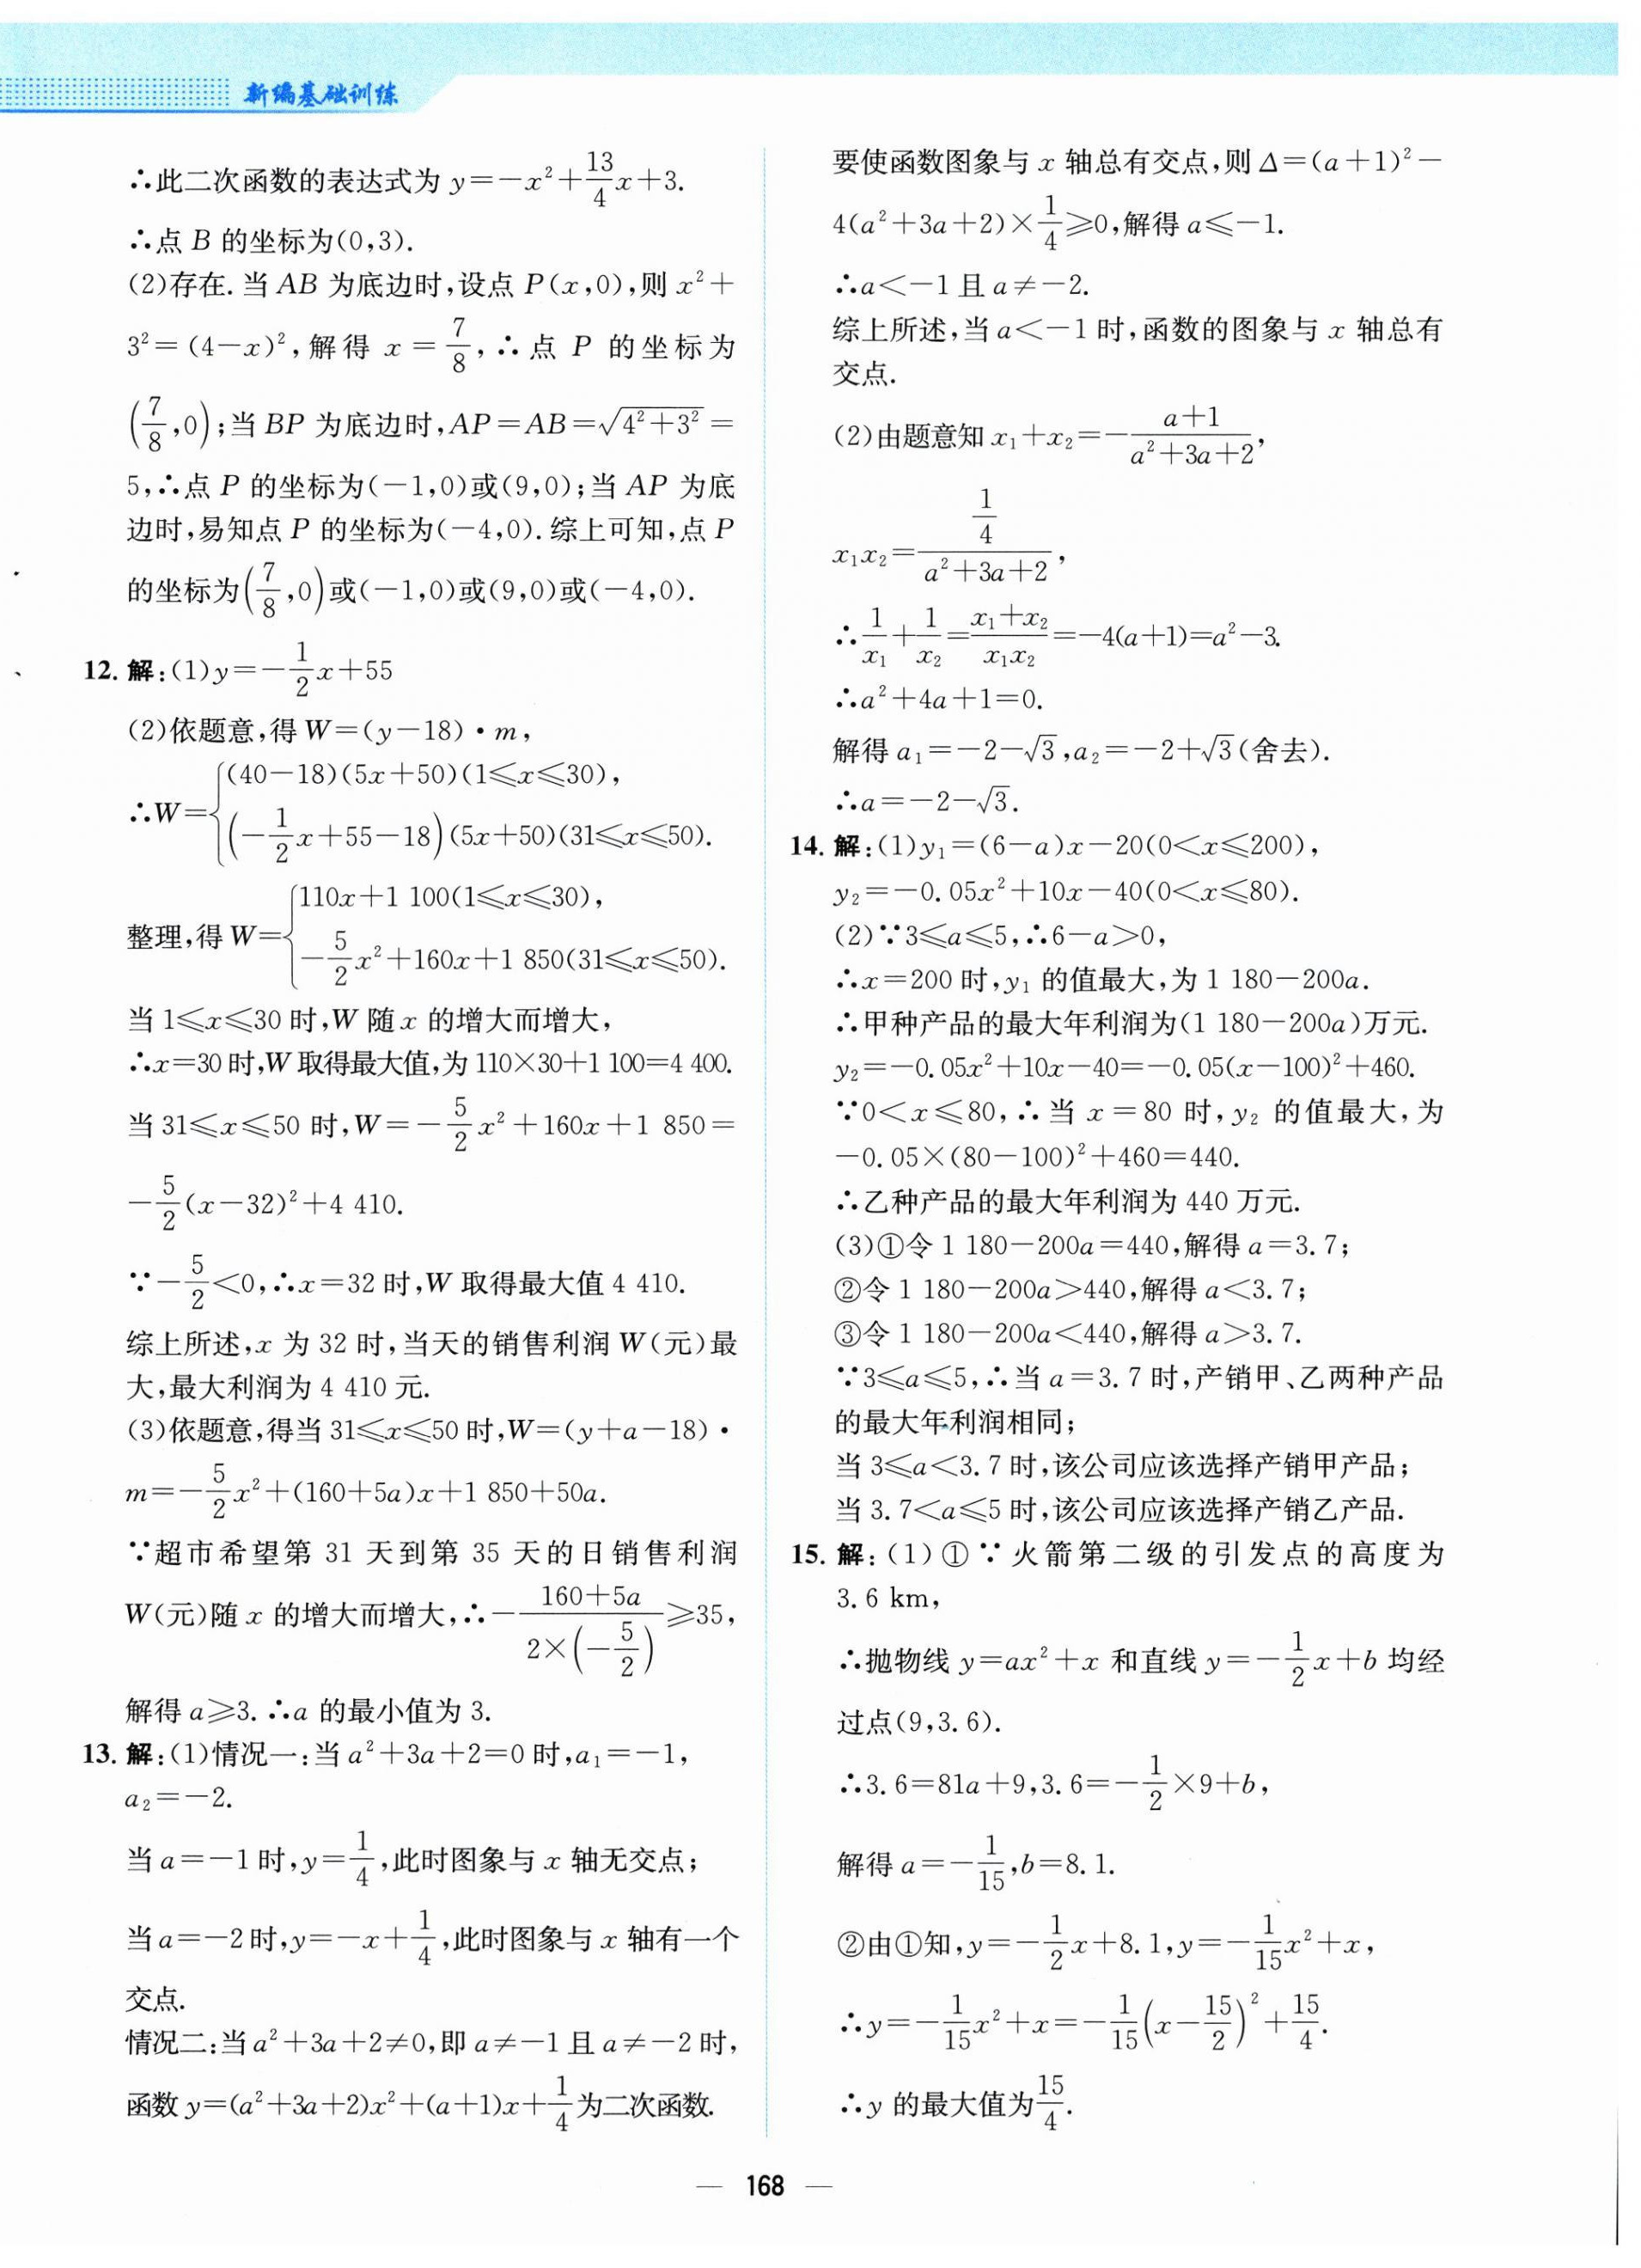 新编基础训练
∴此二次函数的表达式为 y=-x²+13/4x+3.
∴点 B 的坐标为(0,3).
(2)存在.当 AB 为底边时,设点 P(x,0),则 x²+
3²=(4-x)²,解得 x=7/8,∴点 P 的坐标为
(7/8,0);当 BP 为底边时,AP=AB=√(4²+3²)=
5,∴点 P 的坐标为(-1,0)或(9,0);当 AP 为底
边时,易知点 P 的坐标为(-4,0).综上可知,点 P
的坐标为(7/8,0)或(-1,0)或(9,0)或(-4,0).
12. 解:(1)y=-1/2x+55
(2)依题意,得 W=(y-18)·m,
∴W={(40-18)(5x+50)(1≤x≤30),
(-1/2x+55-18)(5x+50)(31≤x≤50).
整理,得 W={110x+1 100(1≤x≤30),
-5/2x²+160x+1 850(31≤x≤50).
当 1≤x≤30 时,W 随 x 的增大而增大,
∴x=30 时,W 取得最大值,为 110×30+1 100=4 400.
当 31≤x≤50 时,W=-5/2x²+160x+1 850=
-5/2(x-32)²+4 410.
∵-5/2<0,∴x=32 时,W 取得最大值 4 410.
综上所述,x 为 32 时,当天的销售利润 W(元)最
大,最大利润为 4 410 元.
(3)依题意,得当 31≤x≤50 时,W=(y+a-18)·
m=-5/2x²+(160+5a)x+1 850+50a.
∵超市希望第 31 天到第 35 天的日销售利润
W(元)随 x 的增大而增大,∴-(160+5a)/(2×(-5/2))≥35,
解得 a≥3.∴a 的最小值为 3.
13. 解:(1)情况一:当 a²+3a+2=0 时,a₁=-1,
a₂=-2.
当 a=-1 时,y=1/4,此时图象与 x 轴无交点;
当 a=-2 时,y=-x+1/4,此时图象与 x 轴有一个
交点.
情况二:当 a²+3a+2≠0,即 a≠-1 且 a≠-2 时,
函数 y=(a²+3a+2)x²+(a+1)x+1/4为二次函数.
要使函数图象与 x 轴总有交点,则 Δ=(a+1)²-
4(a²+3a+2)×1/4≥0,解得 a≤-1.
∴a<-1 且 a≠-2.
综上所述,当 a<-1 时,函数的图象与 x 轴总有
交点.
(2)由题意知 x₁+x₂=-(a+1)/(a²+3a+2),
x₁x₂=(1/4)/(a²+3a+2),
∴1/x₁+1/x₂=(x₁+x₂)/(x₁x₂)=-4(a+1)=a²-3.
∴a²+4a+1=0.
解得 a₁=-2-√3,a₂=-2+√3(舍去).
∴a=-2-√3.
14. 解:(1)y₁=(6-a)x-20(0<x≤200),
y₂=-0.05x²+10x-40(0<x≤80).
(2)∵3≤a≤5,∴6-a>0,
∴x=200 时,y₁ 的值最大,为 1 180-200a.
∴甲种产品的最大年利润为(1 180-200a)万元.
y₂=-0.05x²+10x-40=-0.05(x-100)²+460.
∵0<x≤80,∴当 x=80 时,y₂ 的值最大,为
-0.05×(80-100)²+460=440.
∴乙种产品的最大年利润为 440 万元.
(3)①令 1 180-200a=440,解得 a=3.7;
②令 1 180-200a>440,解得 a<3.7;
③令 1 180-200a<440,解得 a>3.7.
∵3≤a≤5,∴当 a=3.7 时,产销甲、乙两种产品
的最大年利润相同;
当 3≤a<3.7 时,该公司应该选择产销甲产品;
当 3.7<a≤5 时,该公司应该选择产销乙产品.
15. 解:(1)①∵火箭第二级的引发点的高度为
3.6 km,
∴抛物线 y=ax²+x 和直线 y=-1/2x+b 均经
过点(9,3.6).
∴3.6=81a+9,3.6=-1/2×9+b,
解得 a=-1/15,b=8.1.
②由①知,y=-1/2x+8.1,y=-1/15x²+x,
∴y=-1/15x²+x=-1/15(x-15/2)²+15/4.
∴y 的最大值为15/4.
— 168 —